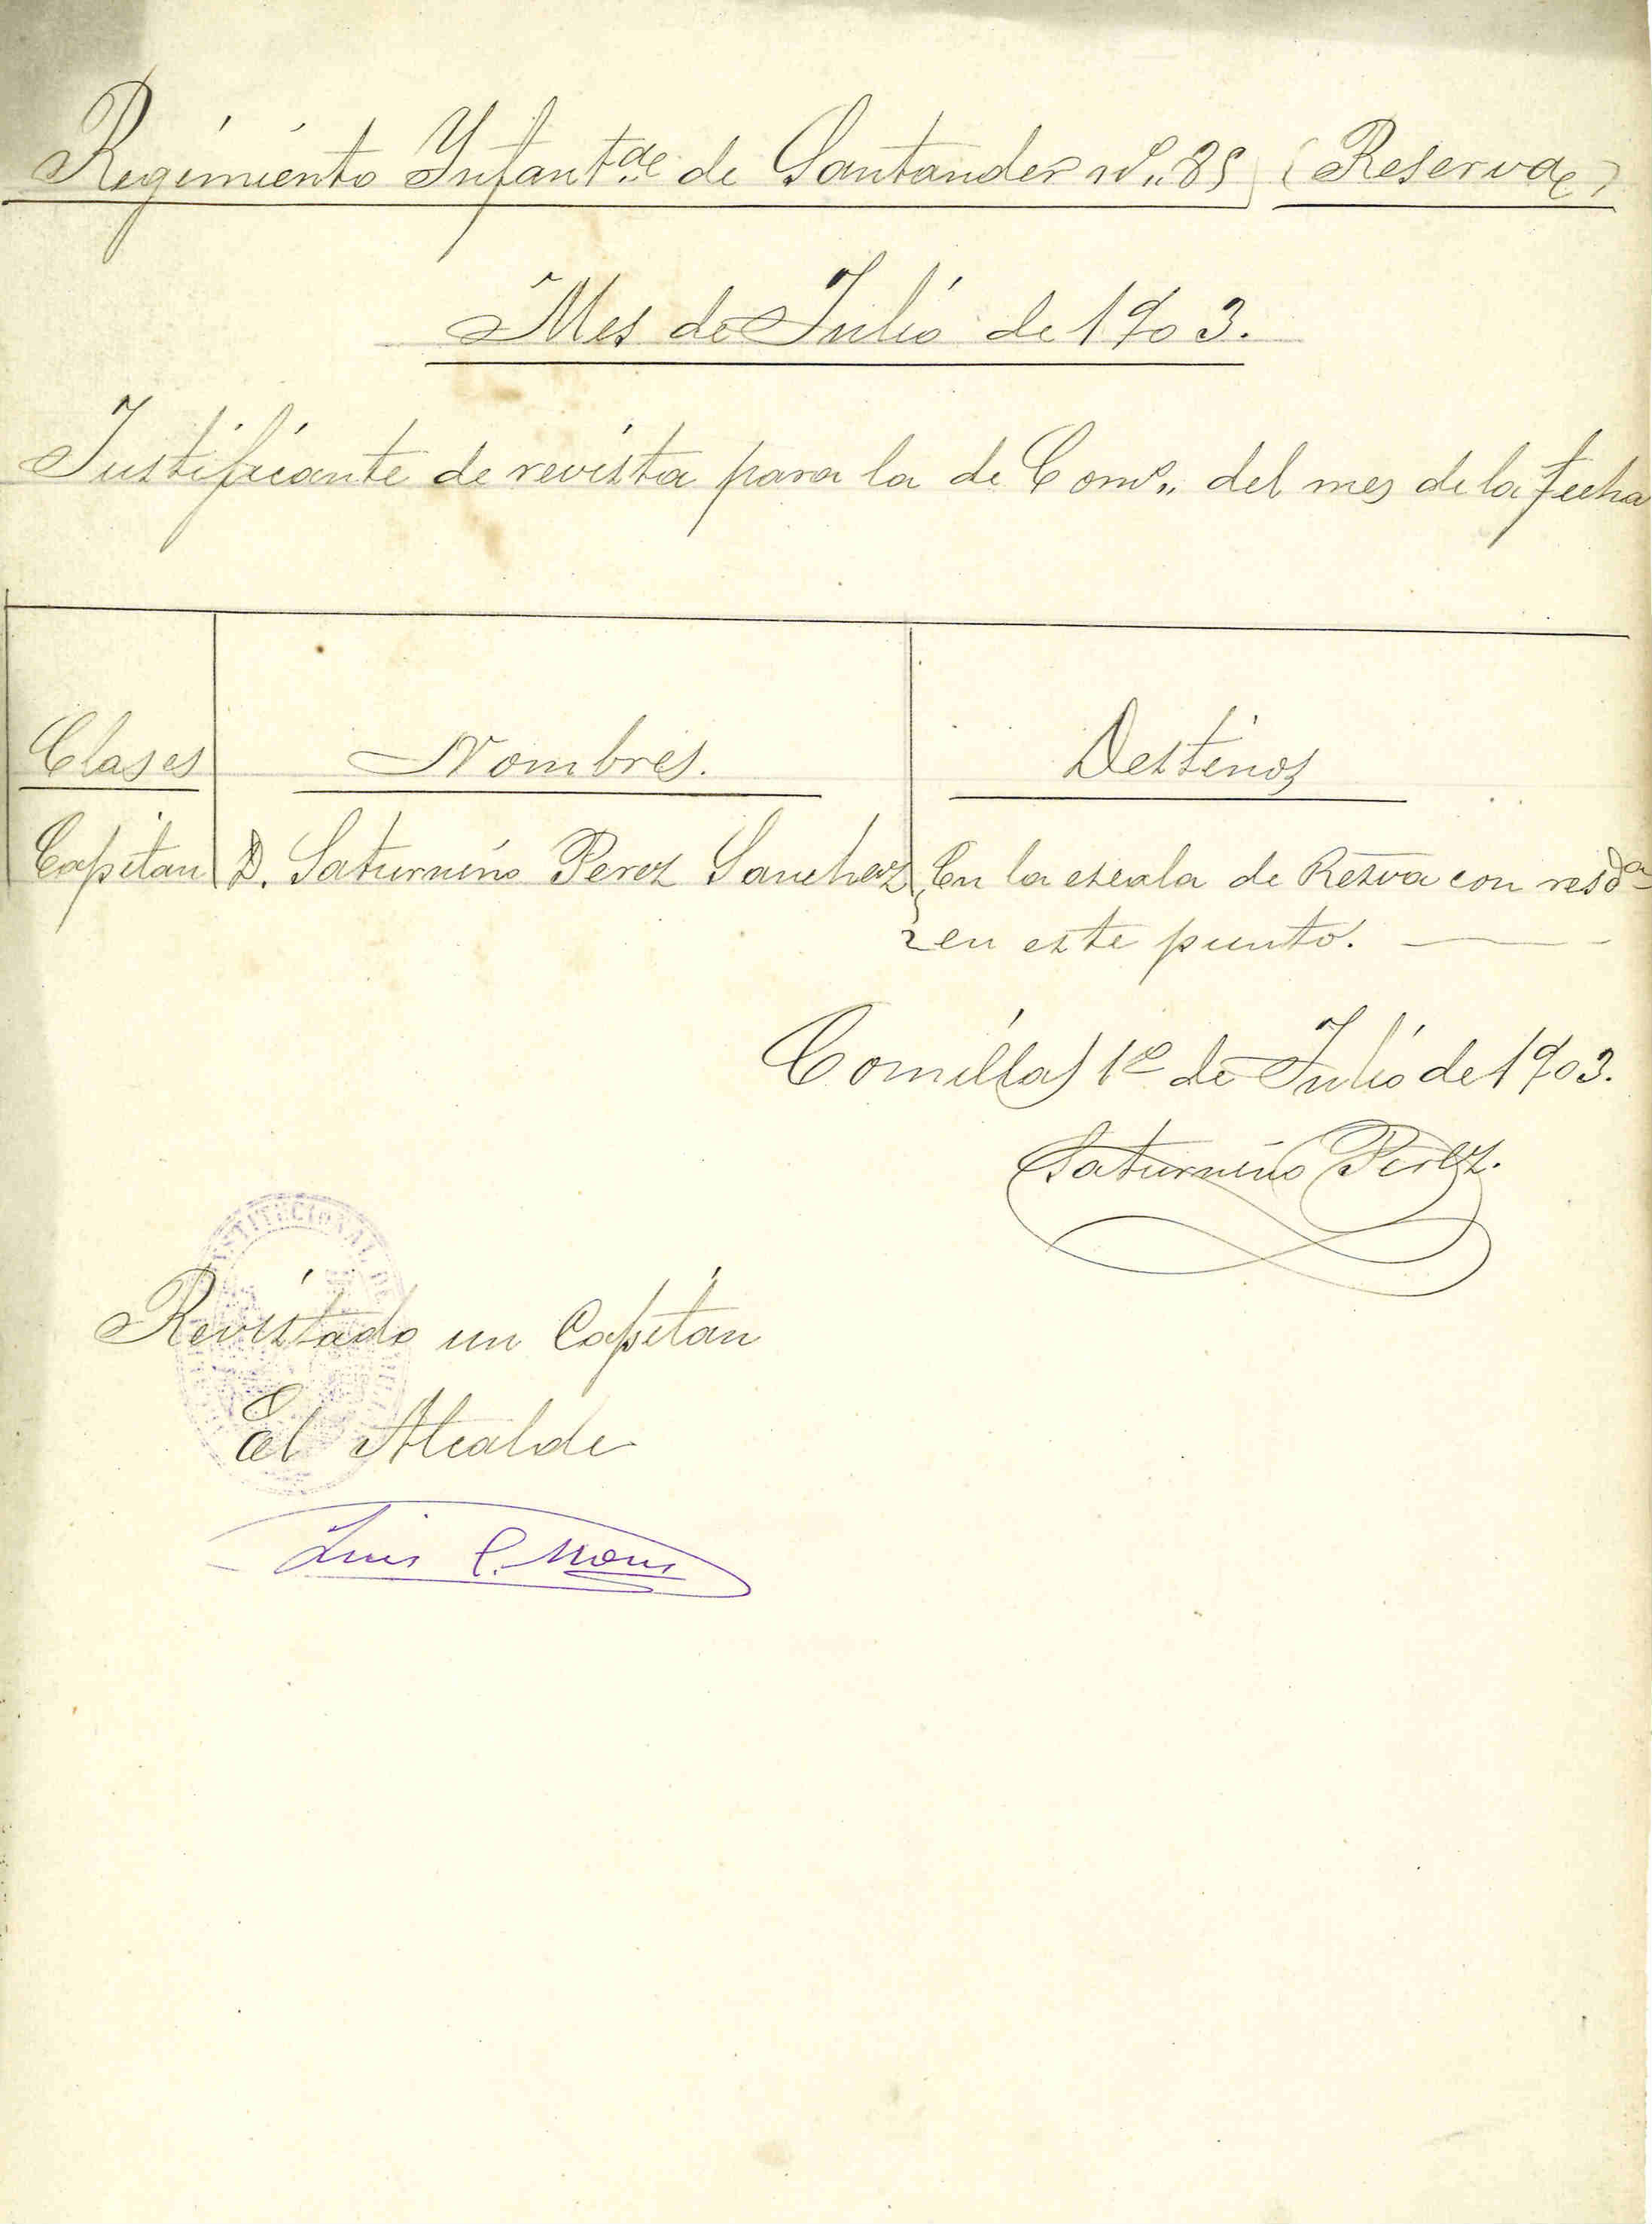 Regimiento Ynfant.ª de Santander nº 85 (Reserva)
Mes de Julio de 1903.
Justificante de revista para la de Comº. del mes de la fecha
Clases Nombres. Destinos
Capitan D. Saturnino Perez Sanchez En la escala de Resva con resdª
en este punto.
Comillas 1º de Julio de 1903.
Saturnino Perez.
STITUCIONAL DE
Revistado un Capitan
El Alcalde
Luis